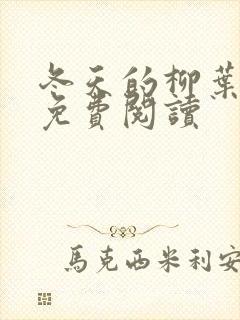 冬天的柳葉
免費閱讀
馬克西米利安